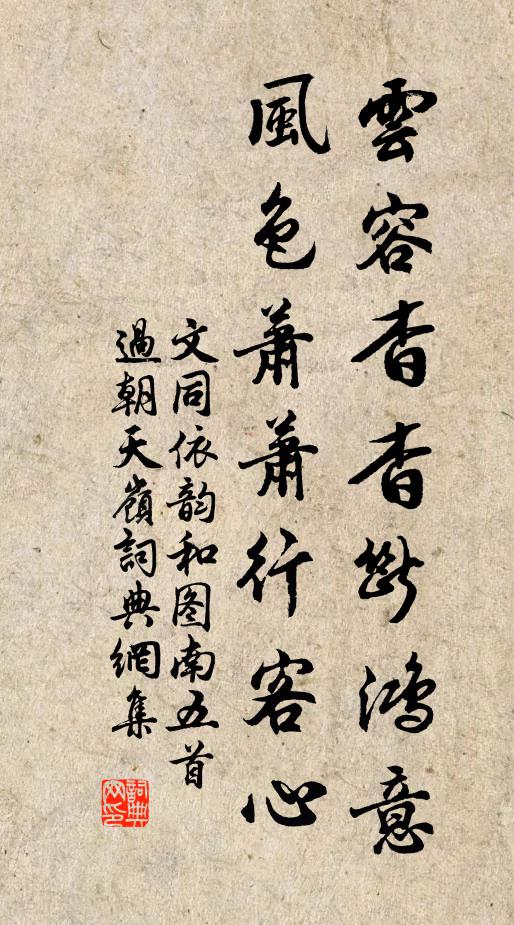 雲容杳杳斷鴻意
風色蕭蕭行客心
文同依韵和图南五首
過朝天嶺詞典網集
詞典網印